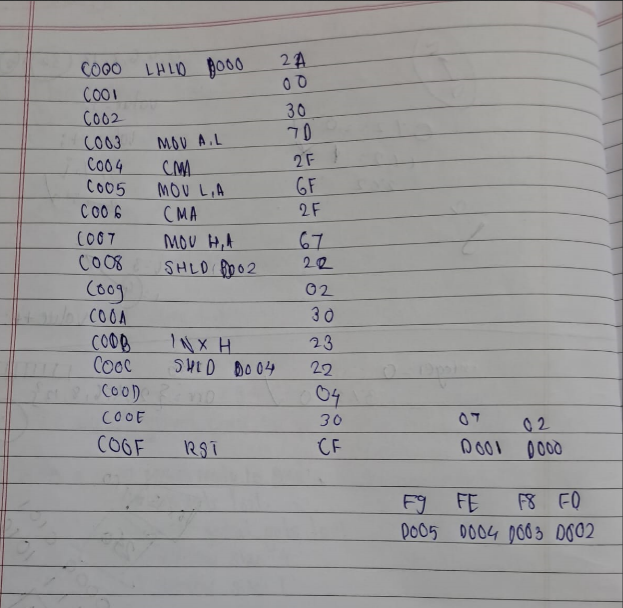 C000 LHLD D000 2A
C001 00
C002 30
C003 MOV A,L 7D
C004 CMA 2F
C005 MOV L,A 6F
C006 CMA 2F
C007 MOV H,A 67
C008 SHLD D002 22
C009 02
C00A 30
C00B INX H 23
C00C SHLD D004 22
C00D 04
C00E 30 07 02
C00F RST CF D001 D000
F9 FE F8 FD
D005 D004 D003 D002